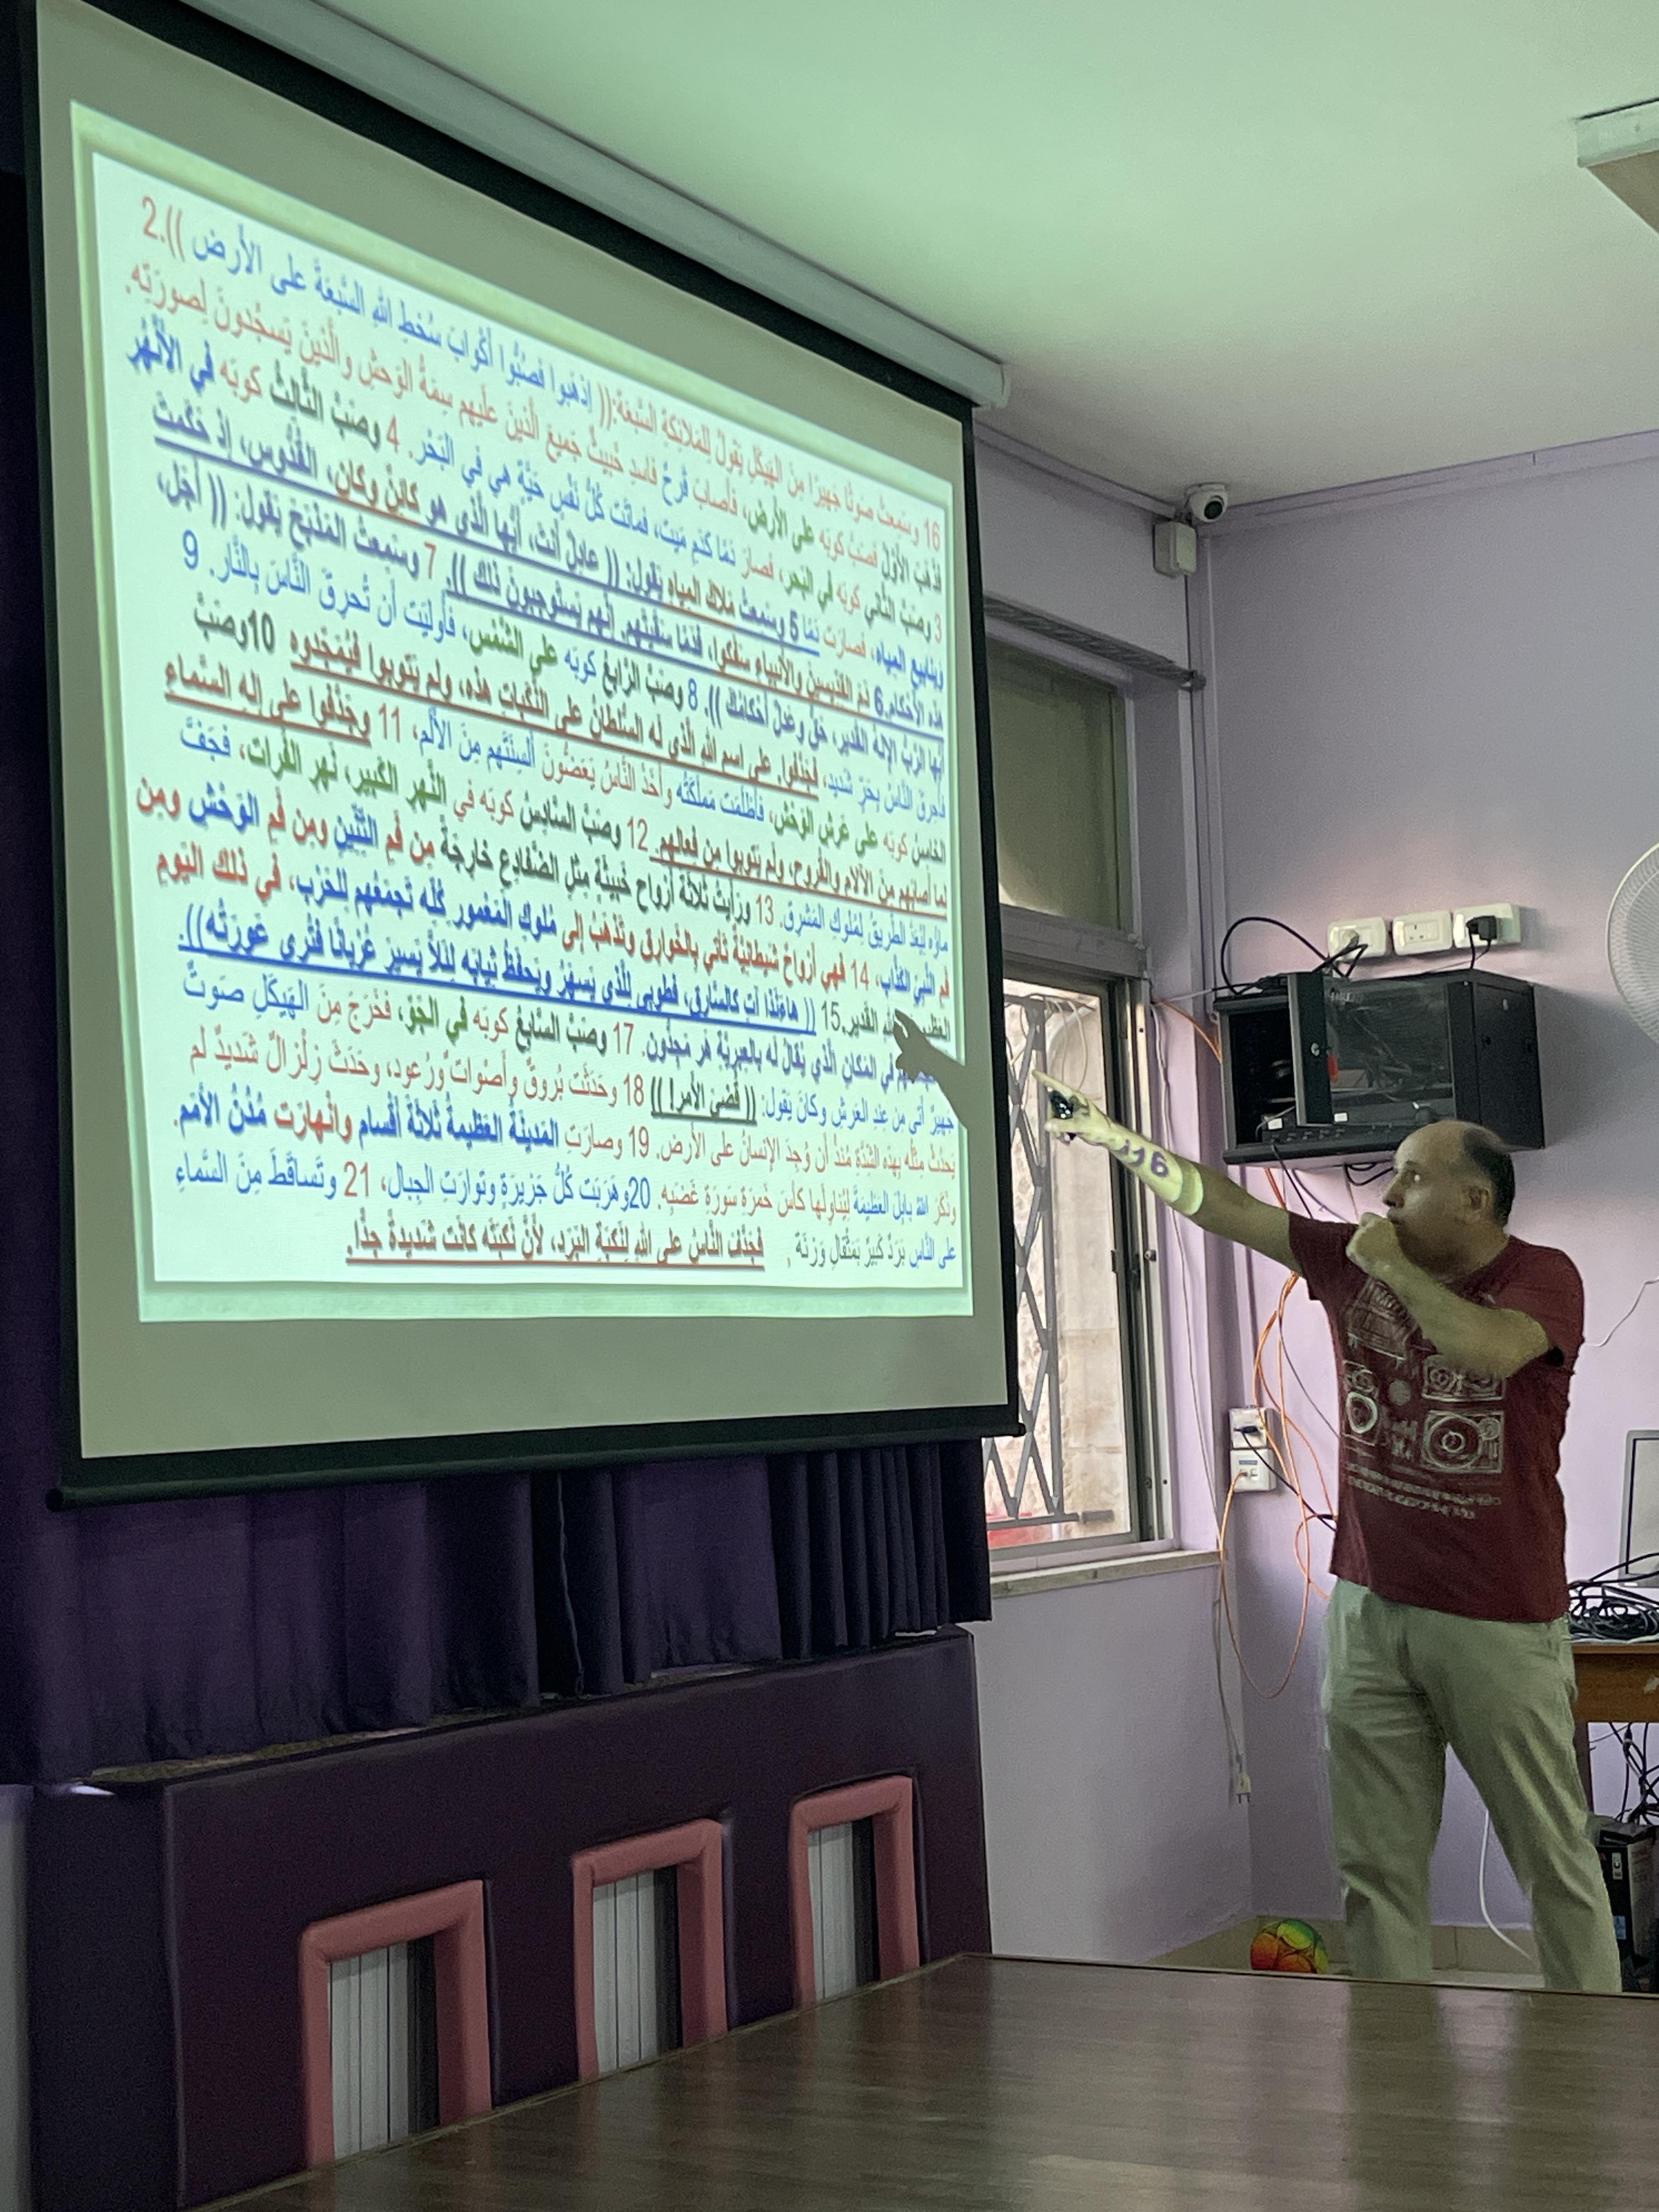 16 وسَمِعتُ صوتًا جَهيرًا مِنَ الهَيكَلِ يَقولُ لِلمَلائِكَةِ السَّبعَة:(( إِذهَبوا فصُبُّوا أَكْوابَ سُخطِ اللهِ السَّبعَةَ على الأَرض )).2
فذَهَبَ الأَوَّلُ فصَبَّ كوبَه على الأَرض، فأَصابَ قُرحٌ فاسِدٌ خَبيثٌ جَميعَ الَّذينَ علَيهِم سِمَةُ الوَحشِ والَّذينَ يَسجُدونَ لِصورَتِه.
3 وصَبَّ الثَّاني كوبَه في البَحر، فصارَ دَمًا كدَمِ مَيت، فماتَت كُلُّ نَفْسٍ حَيَّةٍ هي في البَحْر. 4 وصَبَّ الثَّالِثُ كوبَه في الأَنَّهُرِ
ويَنابيعِ المِياه، فصارَت دَمًا 5 وسَمِعتُ مَلاكَ المِياهِ يَقول: (( عادِلٌ أَنتَ، أَيُّها الَّذي هو كائِنٌ وكان، القُدُّوس، إِذ حَكَمتَ
هذه الأَحكام.6 دَمَ القِدِّيسينَ والأَنبِياءِ سَفَكوا، فدَمًا سَقَيتَهم. إِنَّهم يَستَوجِبونَ ذلك )). 7 وسَمِعتُ المَذبَحَ يَقول: (( أَجَل،
أَيُّها الرَّبُّ الإِلهُ القَدير، حَقٌّ وعَدلٌ أَحْكامُكَ )). 8 وصَبَّ الرَّابِعُ كوبَه على الشَّمْس، فأُولِيَت أَن تُحرِقَ النَّاسَ بِالنَّار. 9
فأُحرِقَ النَّاسُ بِحَرٍّ شَديد، فجَدَّفوا. على اسمِ اللهِ الَّذي لَه السُّلطانُ على النَّكَباتِ هذه، ولم يَتوبوا فيُمَجِّدوه 10وصَبَّ
الخامِسُ كوبَه على عَرشِ الوَحْش، فأَظلَمَت مَملَكَتُه وأَخَذَ النَّاسُ يَعَضُّونَ أَلسِنَتَهم مِنَ الأَلَم، 11 وجَدَّفوا على إِلهِ السَّماءِ
لما أَصابَهم مِنَ الآلامِ والقُروح، ولم يَتوبوا مِن فِعالِهم. 12 وصَبَّ السَّادِسُ كوبَه في النَّهرِ الكَبير، نَهرِ الفُرات، فجَفَّ
ماؤُه لِيُعَدَّ الطَّريقُ لِمُلوكِ المَشرِق. 13 ورَأَيتُ ثَلاثَةَ أَرواحٍ خَبيثَةٍ مِثلِ الضَّفادِعِ خارِجَةً مِن فَمِ التِّنِّينِ ومِن فَمِ الوَحْشِ ومِن
فَمِ النَّبِيِّ الكَذَّاب، 14 فهي أَرواحٌ شَيطانِيَّةٌ تَأتي بِالخَوارِقِ وتَذهَبُ إِلى مُلوكِ المَعْمورِ كُلِّه تَجمَعُهم لِلحَرْب، في ذلك اليَومِ
القَدير.15 (( هاءَنَذا آتٍ كالسَّارِق، فطوبى لِلَّذي يَسهَرُ ويَحفَظُ ثِيابَه لِئَلاَّ يَسيرَ عُرْيانًا فتُرى عَورَتُه)).
في المَكانِ الَّذي يُقالُ لَه بِالعِبرِيَّةِ هَرَ مَجِدُّون. 17 وصَبَّ السَّابِعُ كوبَه في الجَوّ، فخَرَجَ مِنَ الهَيكَلِ صَوتٌ
جَهيرٌ أَتى مِن عِندِ العَرشِ وكانَ يَقول: (( قُضِيَ الأَمر! )) 18 وحَدَثَت بُروقٌ وأَصْواتٌ ورُعود، وحَدَثَ زِلْزالٌ شَديدٌ لم
يَحدُثْ مِثلُه بِهذِه الشِّدَّةِ مُنذُ أَن وُجِدَ الإِنسانُ على الأَرض. 19 وصارَتِ المَدينَةُ العَظيمةُ ثَلاثَةَ أَقْسامٍ وانْهارَت مُدُنُ الأُمَم.
وذَكَرَ اللهُ بابِلَ العَظيمةَ لِيُناوِلَها كأسَ خَمرَةِ سَورَةِ غَضَبِه. 20وهَرَبَت كُلُّ جَزيرَةٍ وتَوارَتِ الجِبال، 21 وتَساقَطَ مِنَ السَّماءِ
على النَّاسِ بَرَدٌ كَبيرٌ بِمِثْقالِ وَزنَة, فجَدَّفَ النَّاسُ على اللهِ لِنَكبَةِ البَرَد، لأَنَّ نَكبَتَه كانَت شَديدةً جِدًّا.